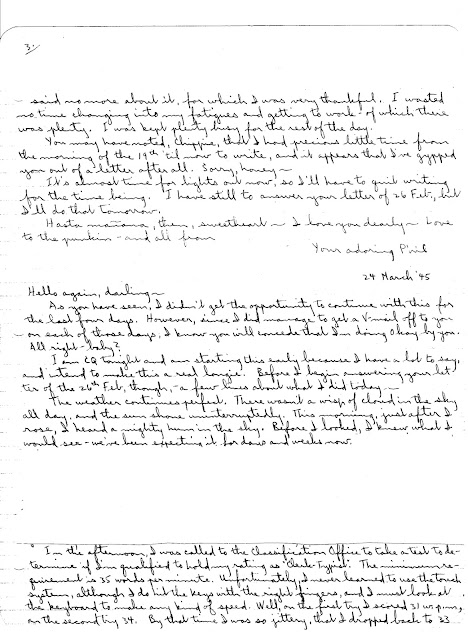 3./
- said no more about it, for which I was very thankful. I wasted
no time changing into my fatigues and getting to work - of which there
was plenty. I was kept plenty busy for the rest of the day.
You may have noted, Chippie, that I had precious little time from
the morning of the 19th 'til now to write, and it appears that I've gypped
you out of a letter after all. Sorry, honey ~
It's almost time for lights out now, so I'll have to quit writing
for the time being. I have still to answer your letter of 26 Feb, but
I'll do that tomorrow.
Hasta mañana, then, sweetheart ~ I love you dearly ~ Love
to the punkin - and all from
Your adoring Phil
24 March '45
Hello again, darling ~
As you have seen, I didn't get the opportunity to continue with this for
the last four days. However, since I did manage to get a V-mail off to you
- on each of those days, I know you will concede that I'm doing okay by you.
All right - baby?
I am CQ tonight and am starting this early because I have a lot to say,
and intend to make this a real longie. Before I begin answering your let
ter of the 26th Feb, though, - a few lines about what I did today ~
The weather continues perfect. There wasn't a wisp of cloud in the sky
all day, and the sun shone uninterruptedly. This morning, just after I
rose, I heard a mighty hum in the sky. Before I looked, I knew what I
would see - we've been expecting it for days and weeks now.
* In the afternoon, I was called to the Classification Office to take a test to de-
termine if I'm qualified to hold my rating as "Clerk-Typist". The minimum re-
quirement is 35 words per minute. Unfortunately, I never learned to use the touch
system, although I do hit the keys with the right fingers, and I must look at
the keyboard to make any kind of speed. Well, on the first try I scored 31 w.p.m.,
on the second try 34. By that time I was so jittery, that I dropped back to 33